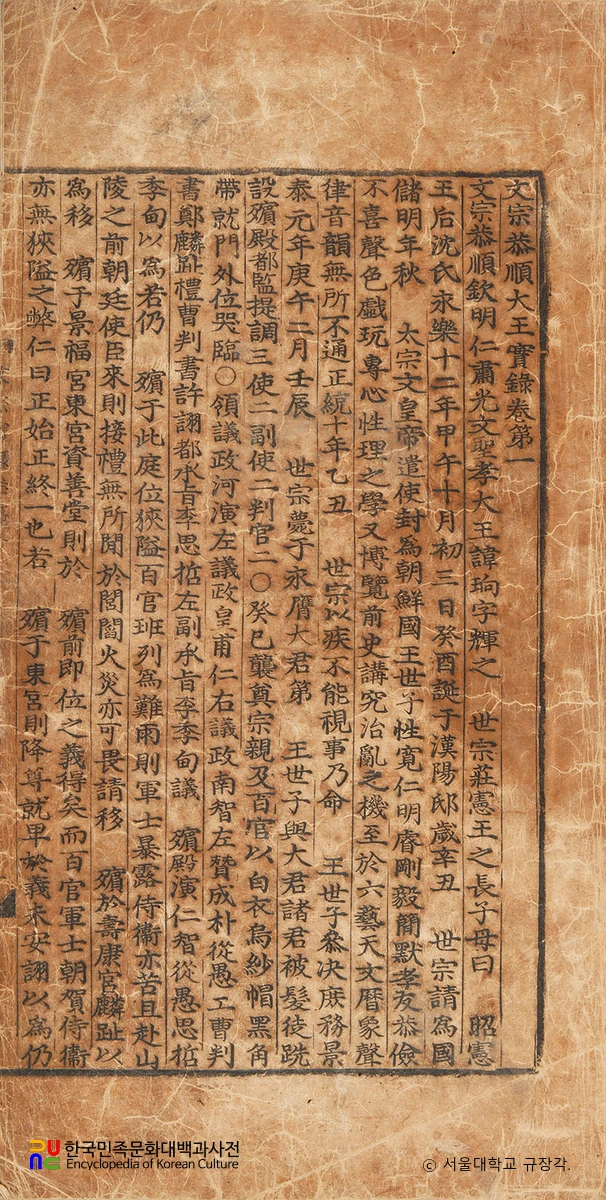 文宗恭順大王實錄卷第一
文宗恭順欽明仁肅光文聖孝大王諱珦字輝之 世宗莊憲王之長子母曰 昭憲
王后沈氏永樂十二年甲午十月初三日癸酉誕于漢陽邸歲辛丑 世宗請爲國
儲明年秋 太宗文皇帝遣使封爲朝鮮國王世子性寬仁明睿剛毅簡默孝友恭儉
不喜聲色戲玩專心性理之學又博覽前史講究治亂之機至於六藝天文曆象聲
律音韻無所不通正統十年乙丑 世宗以疾不能視事乃命 王世子叅决庶務景
泰元年庚午二月壬辰 世宗薨于永膺大君第 王世子與大君諸君被髮徒跣
設殯殿都監提調三使二副使二判官二○癸巳襲奠宗親及百官以白衣烏紗帽黑角
帶就門外位哭臨○領議政河演左議政皇甫仁右議政南智左贊成朴從愚工曹判
書鄭麟趾禮曹判書許詡都承旨李思哲左副承旨李季甸議 殯殿演仁智從愚思哲
季甸以爲若仍 殯于此庭位狹隘百官班列爲難雨則軍士暴露侍衞亦苦且赴山
陵之前朝廷使臣來則接禮無所閒於閭閻火災亦可畏請移 殯於壽康宮麟趾以
爲移 殯于景福宮東宮資善堂則於 殯前即位之義得矣而百官軍士朝賀侍衞
亦無狹隘之弊仁曰正始正終一也若 殯于東宮則降尊就卑於義未安詡以爲仍
한국민족문화대백과사전
Encyclopedia of Korean Culture
ⓒ 서울대학교 규장각.